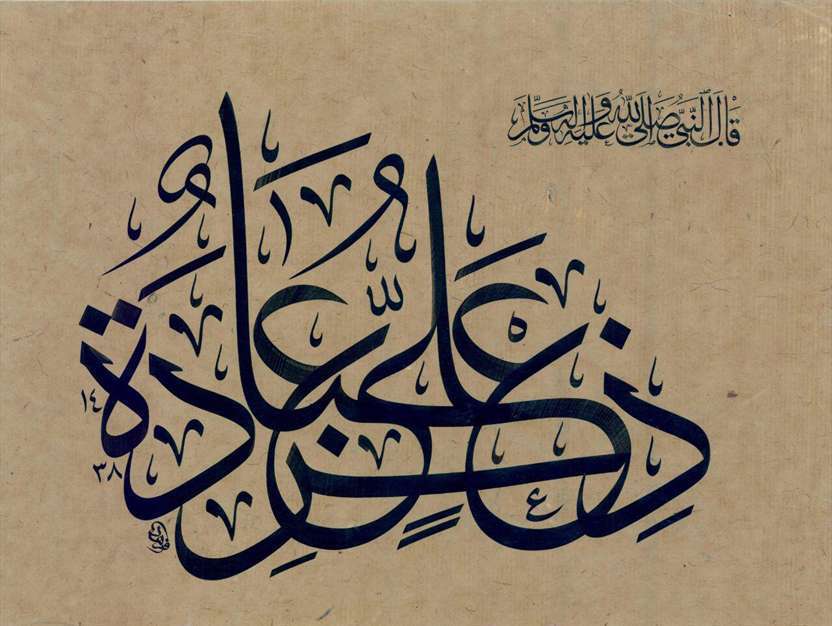 قَالَ النَّبِيُّ صَلَّى اللهُ عَلَيْهِ وَآلِهِ وَسَلَّمَ
ذِكْرُ عَلِيٍّ عِبَادَةٌ
١٤
٣٨